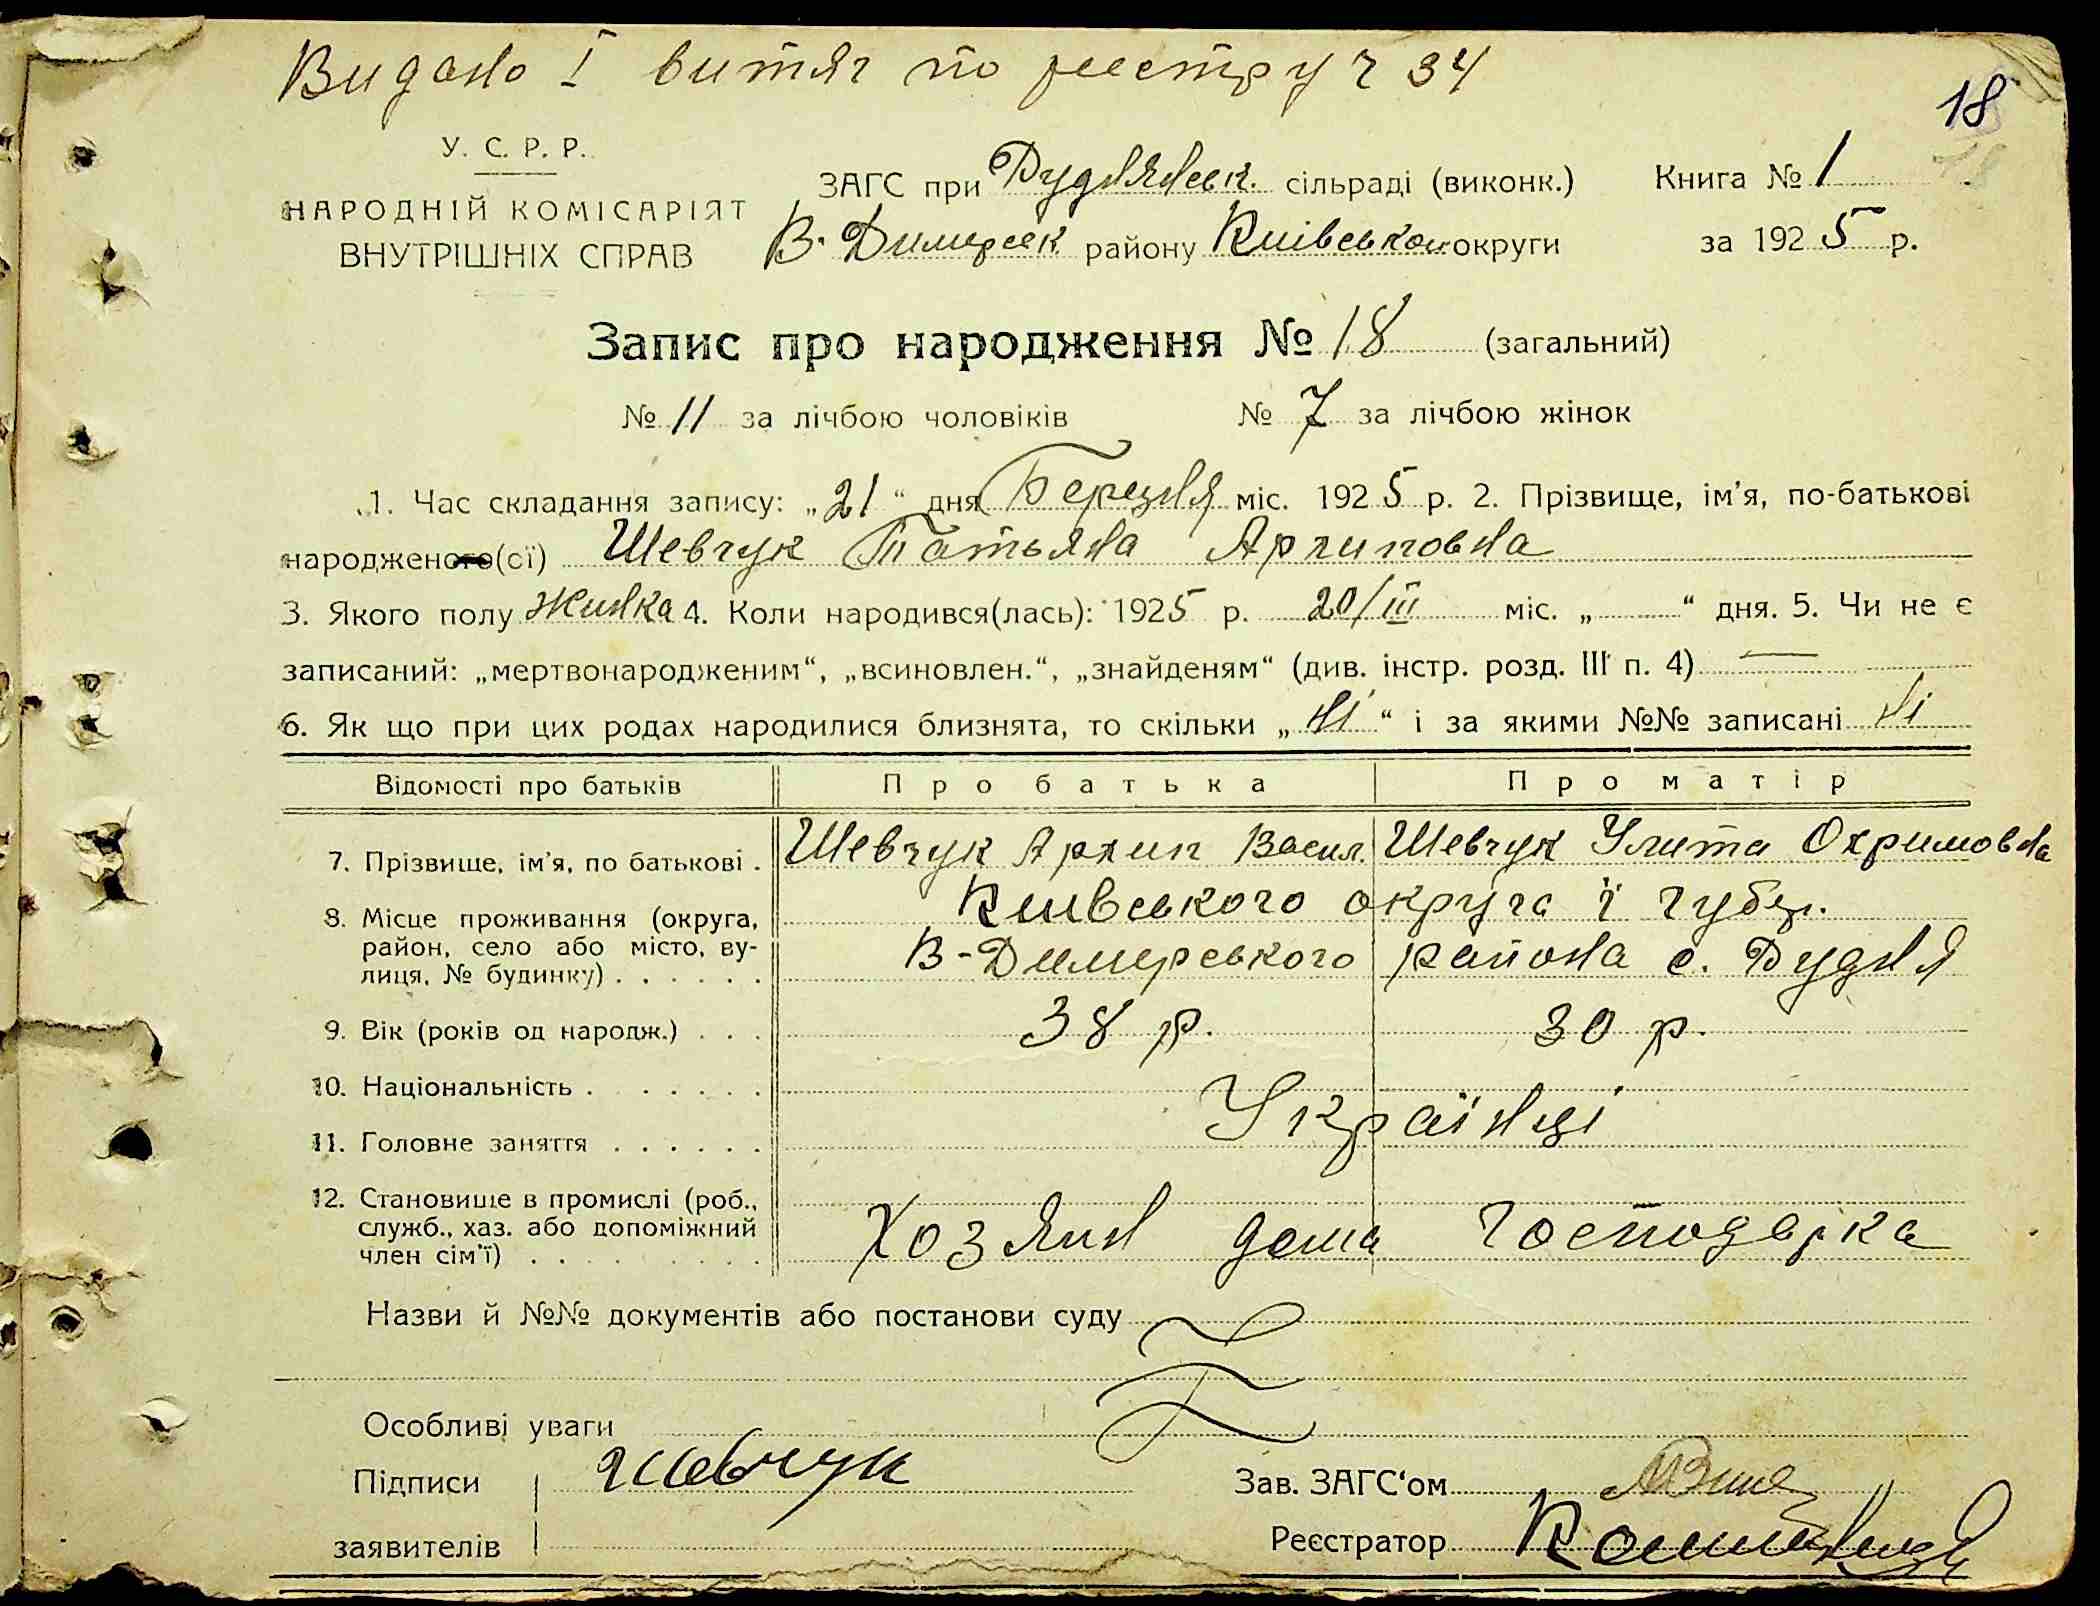 Видано I витяг по реестру ч 34
18
У. С. Р. Р.
НАРОДНІЙ КОМІСАРІЯТ
ВНУТРІШНІХ СПРАВ
ЗАГС при Руднянск. сільраді (виконк.) Книга № 1
В. Димерск району Киівськои округи за 1925 р.
Запис про народження № 18 (загальний)
№ 11 за лічбою чоловіків № 7 за лічбою жінок
1. Час складання запису: „21“ дня Березня міс. 1925 р. 2. Прізвище, ім'я, по-батькові
народженого(ої) Шевчук Татьяна Архиповна
3. Якого полу Жинка 4. Коли народився(лась): 1925 р. 20/III міс. „ “ дня. 5. Чи не є
записаний: „мертвонародженим“, „всиновлен.“, „знайденям“ (див. інстр. розд. III п. 4) —
6. Як що при цих родах народилися близнята, то скільки „Ні“ і за якими №№ записані Ні
Відомості про батьків Про батька Про матір
7. Прізвище, ім'я, по батькові . Шевчук Архип Васил. Шевчук Улита Охримовна
8. Місце проживання (округа, район, село або місто, ву-лиця, № будинку) . . . . . . Киівського округа і губер.
В-Димерського района с. Рудня
9. Вік (років од народж.) . . . 38 р. 30 р.
10. Національність . . . . . . . Українці
11. Головне заняття . . . . . .
12. Становище в промислі (роб., служб., хаз. або допоміжний член сім'ї) . . . . . . . . . Хозяин дома Господарка
Назви й №№ документів або постанови суду
Особливі уваги
Підписи Шевчук Зав. ЗАГС‘ом
заявителів Реєстратор